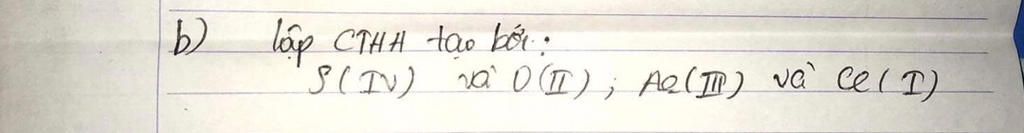 b) lập CTHH tạo bởi:
S(IV) và O(II); Al(III) và Cl(I)